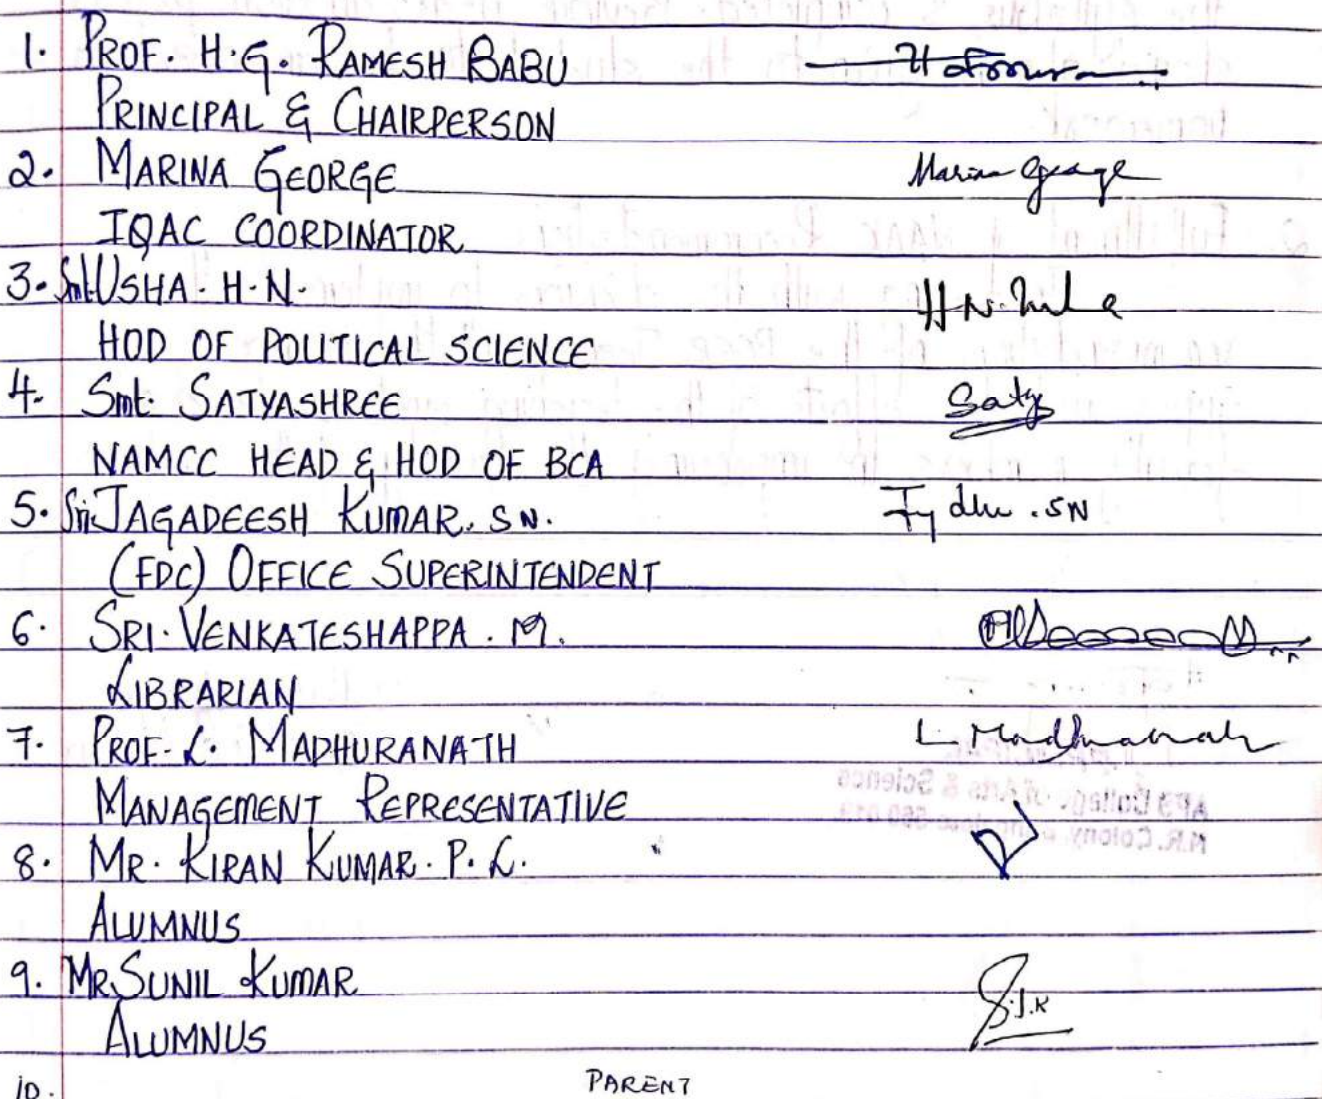 1. PROF. H.G. RAMESH BABU
PRINCIPAL & CHAIRPERSON
2. MARINA GEORGE Marina George
IQAC COORDINATOR
3. Smt. USHA. H. N. H N.
HOD OF POLITICAL SCIENCE
4. Smt. SATYASHREE Saty
NAMCC HEAD & HOD OF BCA
5. Sri. JAGADEESH KUMAR. S N. .SN
(FDC) OFFICE SUPERINTENDENT
6. SRI. VENKATESHAPPA. M.
LIBRARIAN
7. PROF. L. MADHURANATH L. Madhuranath
MANAGEMENT REPRESENTATIVE
8. MR. KIRAN KUMAR. P. L.
ALUMNUS
9. MR. SUNIL KUMAR S.J.K
ALUMNUS
10. PARENT